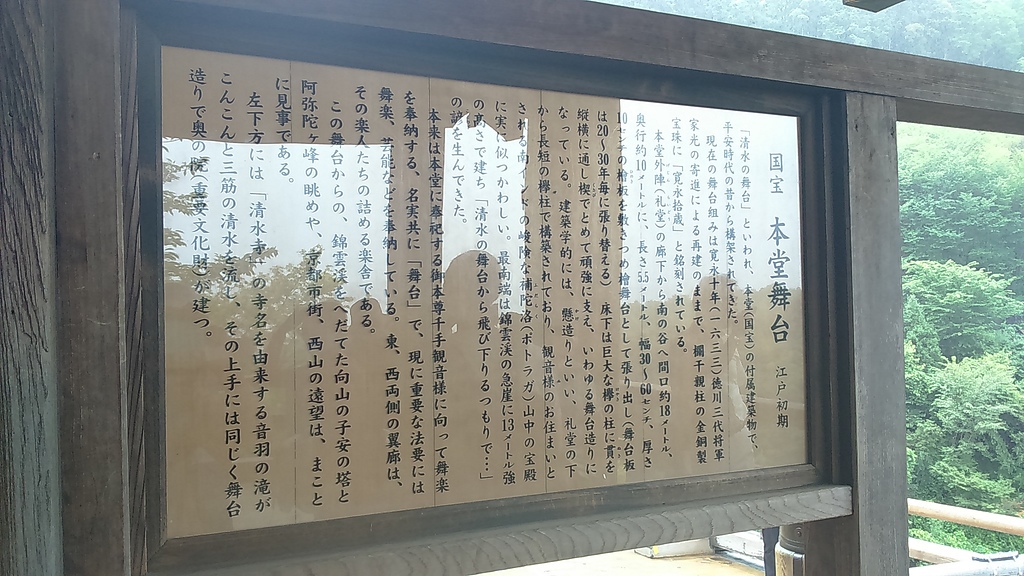 国宝 本堂舞台 江戸初期
「清水の舞台」といわれ、本堂(国宝)の付属建築物で、
平安時代の昔から構架されてきた。
現在の舞台組みは寛永十年(一六三三)徳川三代将軍
家光の寄進による再建のままで、欄干親柱の金銅製
宝珠に「寛永拾歳」と銘刻されている。
本堂外陣(礼堂)の廊下から南の谷へ間口約18メートル、
奥行約10メートルに、長さ5.5メートル、幅30〜60センチ、厚さ
10センチの檜板を敷きつめ檜舞台として張り出し(舞台板
は20〜30年毎に張り替える)床下は巨大な欅の柱に貫を
縦横に通し楔でとめて頑強に支え、いわゆる舞台造りに
なっている。建築学的には、懸造りといい、礼堂の下
から長短の欅柱で構築されており、観音様のお住まいと
される南インドの峻険な補陀洛(ポトラガ)山中の宝殿
に実に似つかわしい。最南端は錦雲渓の急崖に13メートル強
の高さで建ち「清水の舞台から飛び下りるつもりで…」
の諺を生んできた。
本来は本堂に奉祀する御本尊千手観音様に向って舞楽
を奉納する、名実共に「舞台」で、現に重要な法要には
舞楽、芸能などを奉納している。東、西両側の翼廊は、
その楽人たちの詰める楽舎である。
この舞台からの、錦雲渓をへだてた向山の子安の塔と
阿弥陀ヶ峰の眺めや、京都市街、西山の遠望は、まこと
に見事である。
左下方には、「清水寺」の寺名を由来する音羽の滝が
こんこんと三筋の清水を流し、その上手には同じく舞台
造りで奥の院(重要文化財)が建つ。